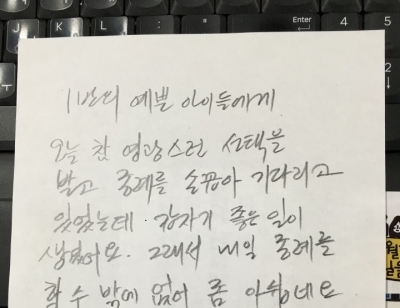 Enter
4
5
1
2
J
K
L
1반의 예쁜 아이들에게
오늘 참 영광스런 선택을
받고 종례를 손꼽아 기다리고
있었는데. 갑자기 좋은 일이
생겼어요. 그래서 내일 종례를
할 수 밖에 없어 좀 아쉽네요